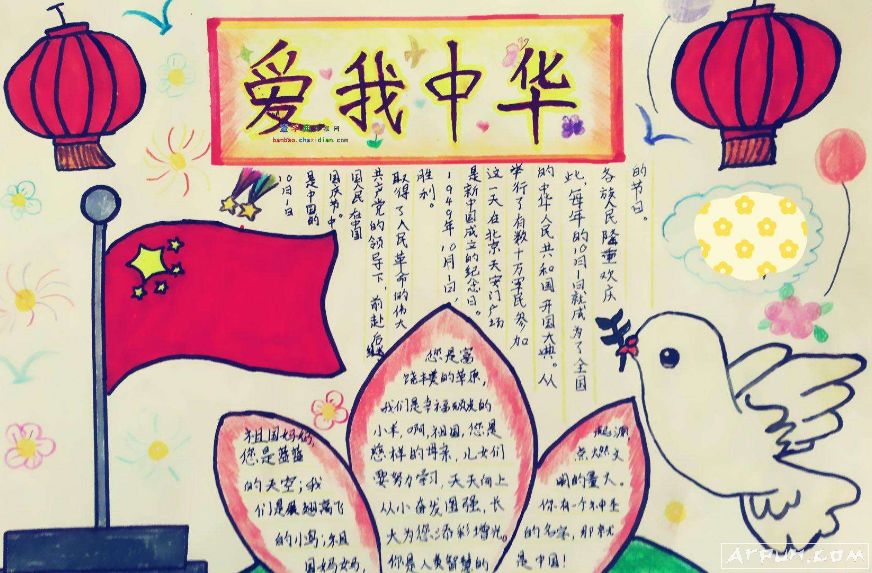 爱我中华
banbao.chazidian.com
10月1日
是中国的
国庆节。中
国人民在中国
共产党的领导下,前赴后继
取得了人民革命的伟大
胜利。
1949年10月1日,
是新中国成立的纪念日。
这一天在北京天安门广场
举行了有数十万军民参加
的中华人民共和国开国大典。从
此,每年的10月1日就成为了全国
各族人民隆重欢庆
的节日。
祖国妈妈,
您是蓝蓝
的天空;我
们是展翅高飞
的小鸟;祖
国妈妈,
您是富
饶丰美的草原,
我们是幸福的
小羊。啊,祖国,您是
慈祥的母亲,儿女们
要努力学习,天天向上
从小奋发图强,长
大为您添彩增光。
您是人类智慧的
起源,
点燃文
明的量大。
你有一个神圣
的名字,那就
是中国!
Arpun.com